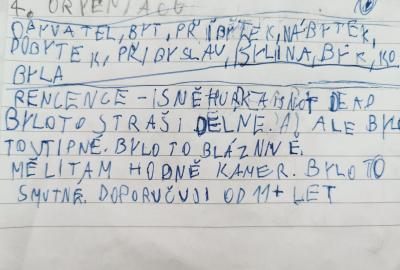 4. ORVENTACE
OBYVATEL, BYT, PŘÍBYTEK, NÁBYTEK,
DOBYTEK, PŘIBYSLAV, BYLINA, BÝK, KO
BYLA
RENCENCE - SNĚHURKA NOT DEAD
BYLO TO STRAŠIDĚLNE. ALE BYLO
TO VTIPNĚ. BYLO TO BLÁZNIVĚ.
MĚLI TAM HODNĚ KAMER. BYLO TO
SMUTNĚ. DOPORUČUJI OD 11+ LET